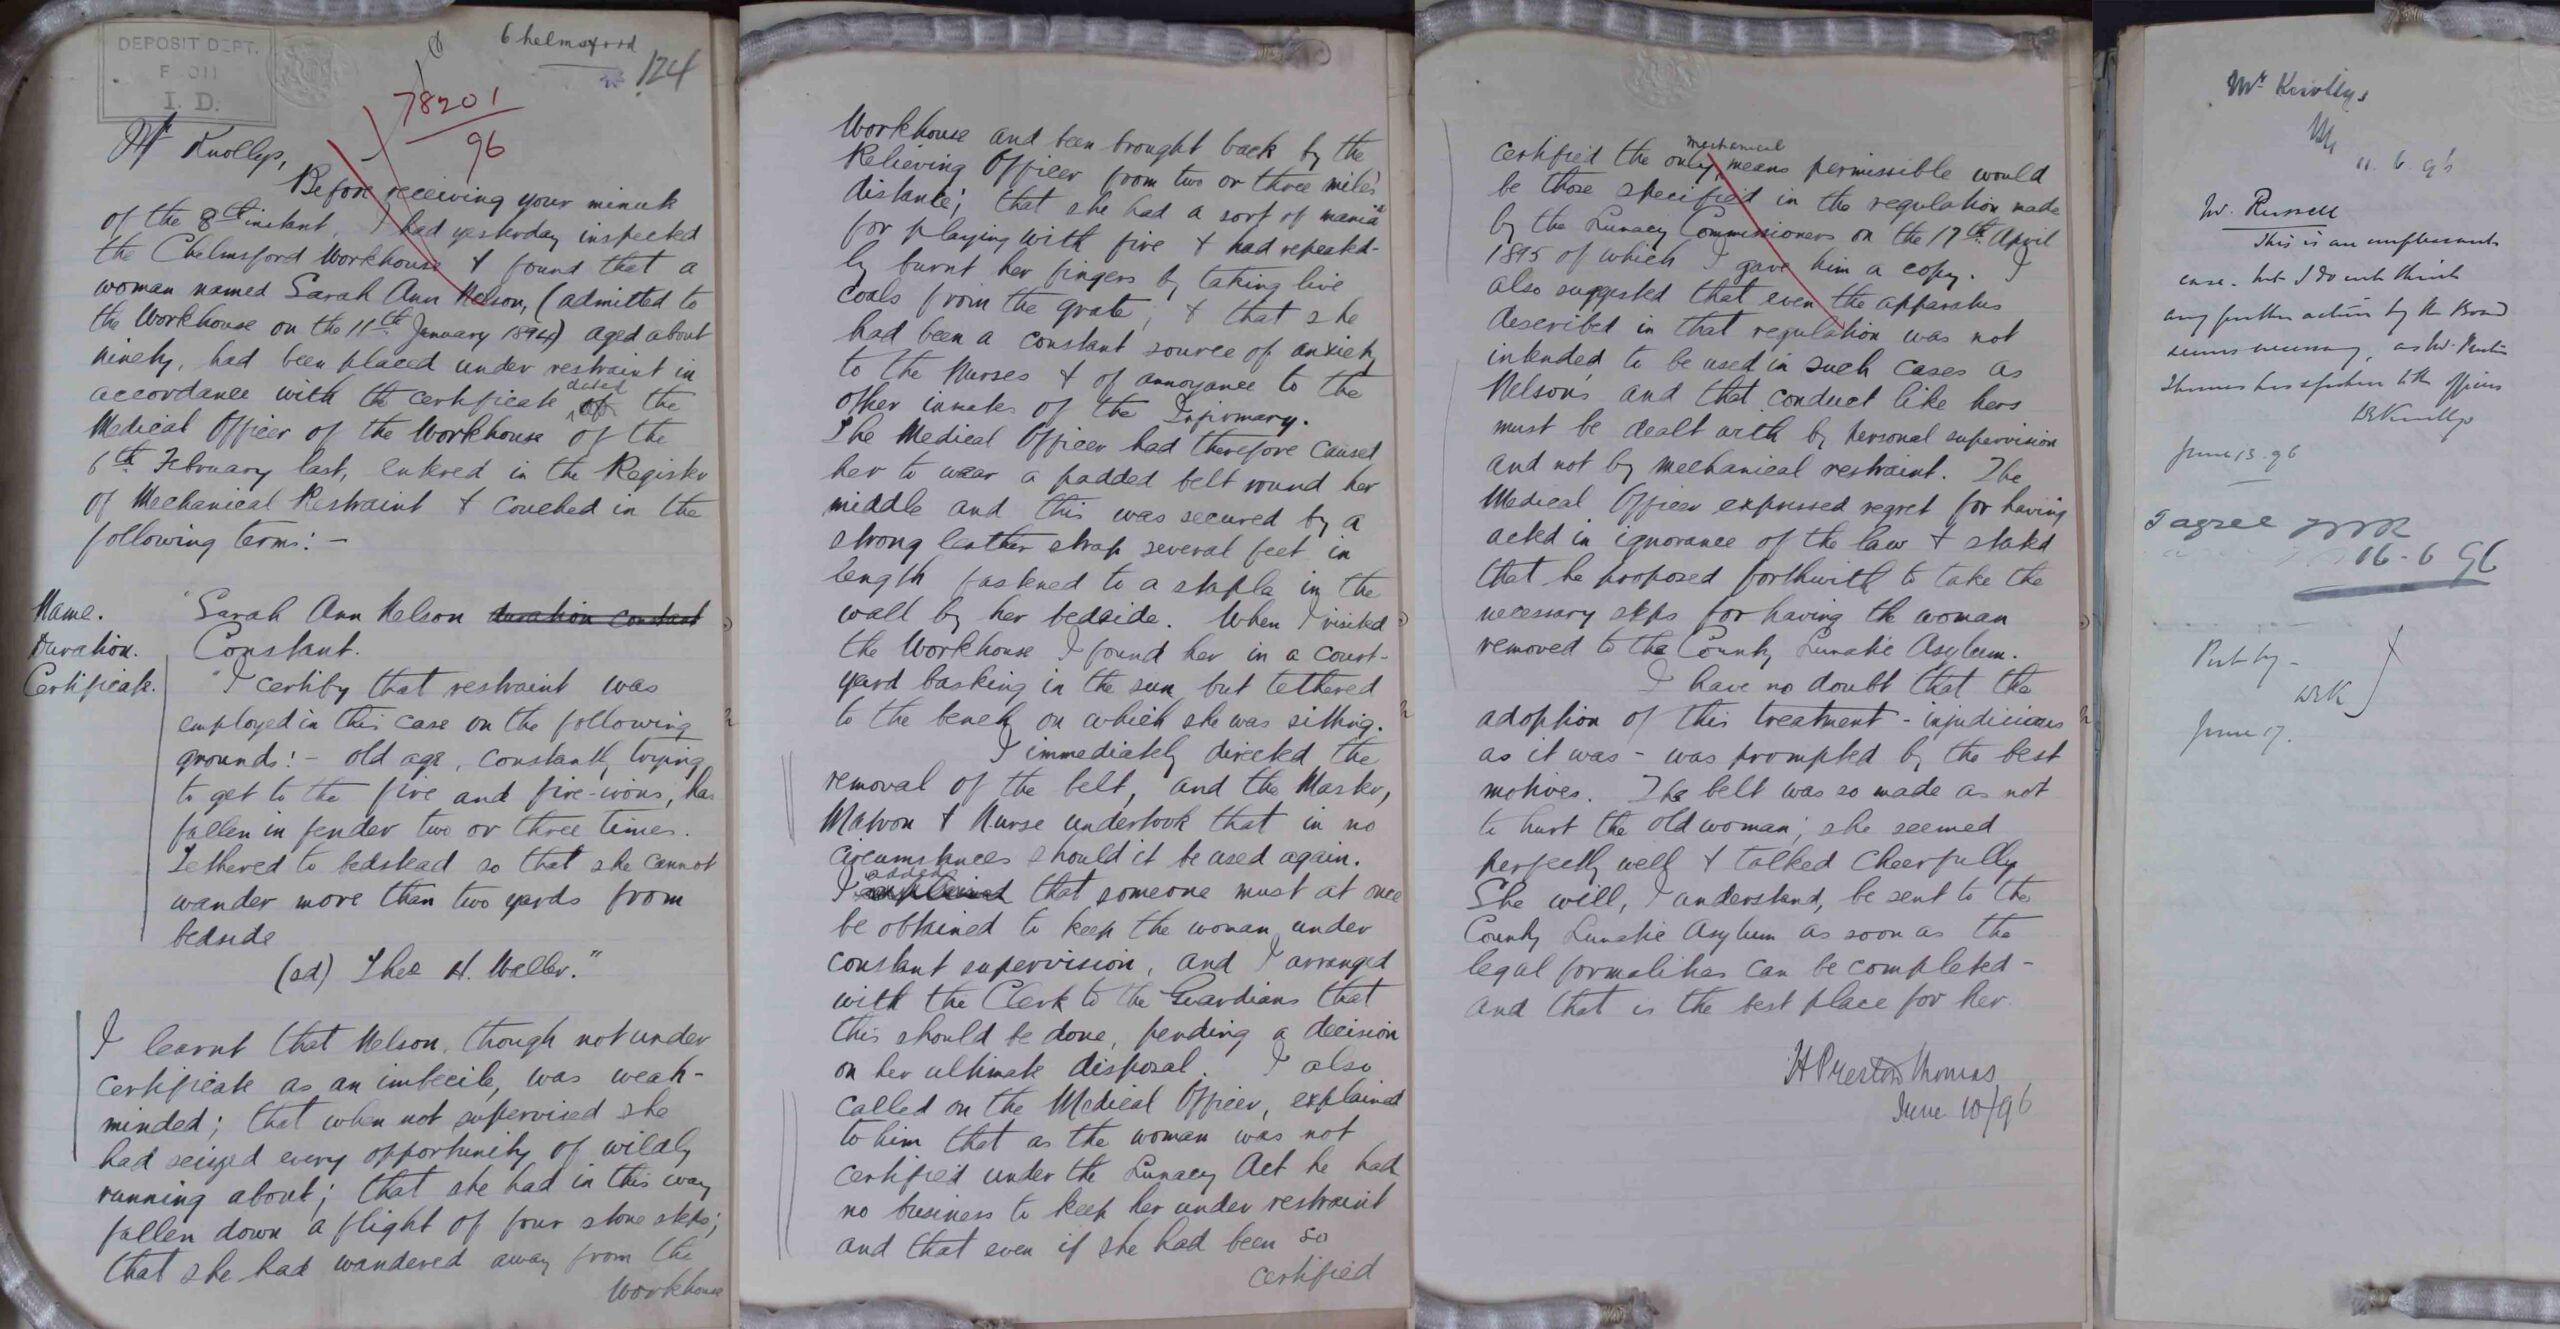 DEPOSIT DEPT.
I. D.
Chelmsford
124
78201
96
Mr Knollys,
Before receiving your minute
of the 8th instant, I had yesterday inspected
the Chelmsford Workhouse & found that a
woman named Sarah Ann Nelson, (admitted to
the Workhouse on the 11th January 1894) aged about
ninety, had been placed under restraint in
accordance with the certificate dated of the
Medical Officer of the Workhouse of the
6th February last, entered in the Register
of Mechanical Restraint & couched in the
following terms: -
Name. "Sarah Ann Nelson duration constant
Duration. Constant.
Certificate. "I certify that restraint was
employed in this case on the following
grounds: - old age, constantly trying
to get to the fire and fire-irons, has
fallen in fender two or three times.
Tethered to bedstead so that she cannot
wander more than two yards from
bedside
(sd) Theo H. Waller."
I learnt that Nelson, though not under
certificate as an imbecile, was weak-
minded; that when not supervised she
had seized every opportunity of wildly
running about; that she had in this way
fallen down a flight of four stone steps;
that she had wandered away from the
Workhouse
Workhouse and been brought back by the
Relieving Officer from two or three miles'
distance; that she had a sort of mania
for playing with fire & had repeated-
ly burnt her fingers by taking live
coals from the grate; & that she
had been a constant source of anxiety
to the Nurses & of annoyance to the
other inmates of the Infirmary.
The Medical Officer had therefore caused
her to wear a padded belt round her
middle and this was secured by a
strong leather strap several feet in
length fastened to a staple in the
wall by her bedside. When I visited
the Workhouse I found her in a court-
yard basking in the sun but tethered
to the bench on which she was sitting.
I immediately directed the
removal of the belt, and the Master,
Matron & Nurse undertook that in no
circumstances should it be used again.
added
I explained that someone must at once
be obtained to keep the woman under
constant supervision, and I arranged
with the Clerk to the Guardians that
this should be done, pending a decision
on her ultimate disposal. I also
called on the Medical Officer, explained
to him that as the woman was not
certified under the Lunacy Act he had
no business to keep her under restraint
and that even if she had been so
certified
mechanical
certified the only means permissible would
be those specified in the regulation made
by the Lunacy Commissioners on the 17th April
1895 of which I gave him a copy. I
also suggested that even the apparatus
described in that regulation was not
intended to be used in such cases as
Nelson's and that conduct like hers
must be dealt with by personal supervision
and not by mechanical restraint. The
Medical Officer expressed regret for having
acted in ignorance of the law & stated
that he proposed forthwith to take the
necessary steps for having the woman
removed to the County Lunatic Asylum.
I have no doubt that the
adoption of this treatment - injudicious
as it was - was prompted by the best
motives. The belt was so made as not
to hurt the old woman; she seemed
perfectly well & talked cheerfully
She will, I understand, be sent to the
County Lunatic Asylum as soon as the
legal formalities can be completed -
and that is the best place for her.
H Preston Thomas
June 10/96
Mr Knollys
11. 6. 96
Mr. Russell
This is an unpleasant
case. but I do not think
any further action by the Board
seems necessary, as Mr. Preston
Thomas has spoken to the officers
WEKnollys
June 13. 96
I agree
16-6 96
Put by -
WEK
June 17.